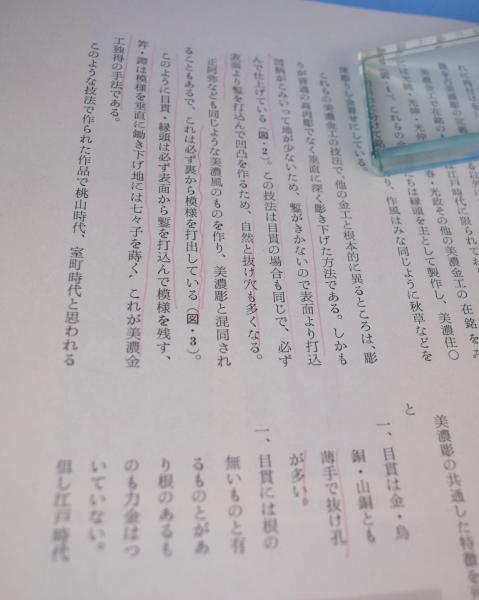 れに片付ける
期を美濃彫の定義
美濃金工で在銘の
は光暁・光仲・光仲
（図・1）。これらの
は江戸時代に限られてお
春・光政その他の美濃金工の在銘をみ
ちは縁頭を主として製作し、美濃住〇
り、作風はみな同じように秋草などを
深彫りし金着せにしている
これらの美濃金工の技法で、他の金工と根本的に異るところは、彫
りが普通の高肉彫でなく垂直に深く彫き下げた方法である。しかも
図柄がこみいって地が少ないため、鏨がきかないので表面より打込
んで仕上げている（図・2）。この技法は目貫の場合も同じで、必ず
表面より鏨を打込んで凹凸を作るため、自然と抜け穴も多くなる。
正阿弥なども同じような美濃風のものを作り、美濃彫と混同され
ることもあるで、これは必ず裏から模様を打出している（図・3）。
このように目貫・縁頭は必ず表面から鏨を打込んで模様を残す、
笄・鐔は模様を垂直に鋤き下げ地には七々子を蒔く、これが美濃金
工独得の手法である。
このような技法で作られた作品で桃山時代、室町時代と思われる
美濃彫の共通した特徴を列
と
一、目貫は金・烏
銅・山銅とも
薄手で抜け孔
が多い。
一、目貫には根の
無いものと有
るものとがあ
り根のあるも
のも力金はつ
いていない。
但し江戸時代